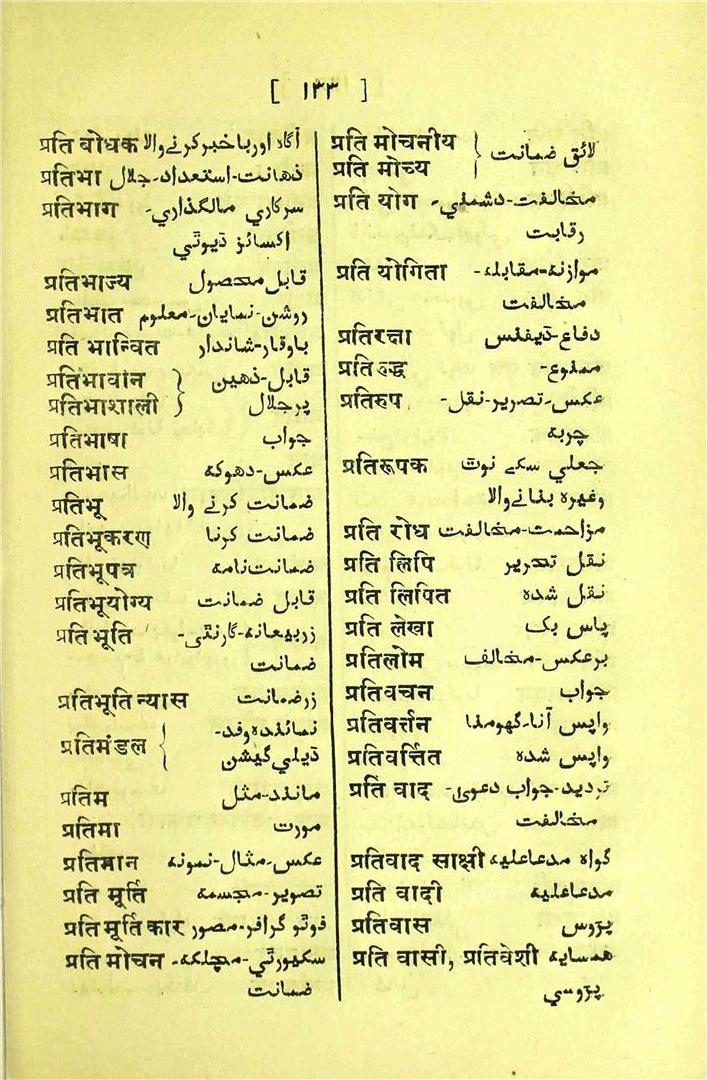 [ ۱۳۳ ]
प्रति बोधक آگاہ اور باخبر کرنے والا
प्रतिभा ذهانت-استعداد-جلال
प्रतिभाग سرکاري مالگذاري-
اکسائز ڈیوٹي
प्रतिभाज्य قابل محصول
प्रतिभात روشن-نمایاں-معلوم
प्रति भान्वित باوقار-شاندار
प्रतिभावान } قابل-ذهین
प्रतिभाशाली } پرجلال
प्रतिभाषा جواب
प्रतिभास عکس-دھوکه
प्रतिभू ضمانت کرنے والا
प्रतिभूकरण ضمانت کرنا
प्रतिभूपत्र ضمانت نامه
प्रतिभूयोग्य قابل ضمانت
प्रतिभूति زربیعانه-گارنٹی-
ضمانت
प्रतिभूति न्यास زرضمانت
प्रतिमंडल { نمائندہ وفد-
ڈیلي گیشن
प्रतिम مانند-مثل
प्रतिमा مورت
प्रतिमान عکس-مثال-نمونه
प्रति मूर्ति تصویر-مجسمه
प्रति मूर्ति कार فوٹو گرافر-مصور
प्रति मोचन سکیورٹي-مچلکه-
ضمانت
प्रति मोचनीय } لائق ضمانت
प्रति मोच्य
प्रति योग مخالفت-دشملي-
رقابت
प्रति योगिता موازنه-مقابله-
مخالفت
प्रतिरक्षा دفاع-ڈیفنس
प्रतिरुद्ध ممنوع-
प्रतिरुप عکس-تصریر-نقل-
چربه
प्रतिरूपक جعلي سکے نوٹ
وغیرہ بنانے والا
प्रति रोध مزاحمت-مخالفت
प्रति लिपि نقل تحریر
प्रति लिपित نقل شدہ
प्रति लेखा پاس بک
प्रतिलोम برعکس-مخالف
प्रतिवचन جواب
प्रतिवर्त्तन واپس آنا-گھومنا
प्रतिवर्त्तित واپس شدہ
प्रति वाद تردید-جواب دعوی-
مخالفت
प्रतिवाद साक्षी گواہ مدعاعلیه
प्रति वादी مدعاعلیه
प्रतिवास پڑوس
प्रति वासी, प्रतिवेशी همسایه
پڑوسي